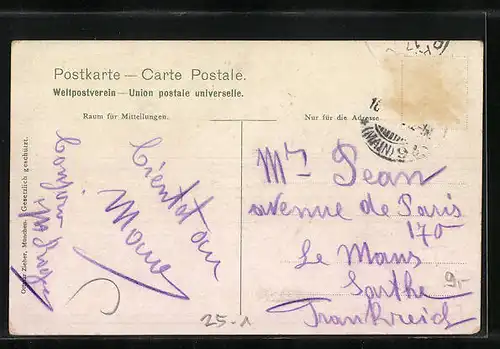 Postkarte — Carte Postale.
Weltpostverein — Union postale universelle.
Raum für Mitteilungen.
Nur für die Adresse
(MAIN)
Ottmar Zieher, München. Gesetzlich geschützt.
bientôt au
Mans
Mr Jean
avenue de Paris
170
Le Mans
Sarthe
Frankreich
9,-
25-1